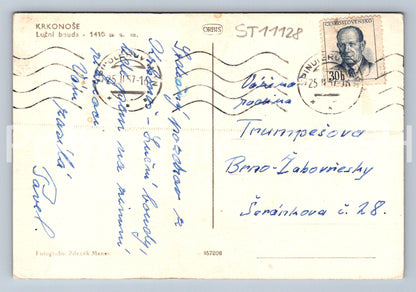 KRKONOŠE
Luční bouda - 1410 m n. m.
ORBIS
ST11128
ČESKOSLOVENSKO
30h
25. II 57
Srdečný pozdrav z
Krkonoš - Luční boudy,
kde jsem na zimní
rekreaci
Vám posílá
Pavel.
Vážená
rodina
Trumpešova
Brno-Žabovřesky
Šeránkova č. 28.
Fotografie: Zdenek Menec
167208